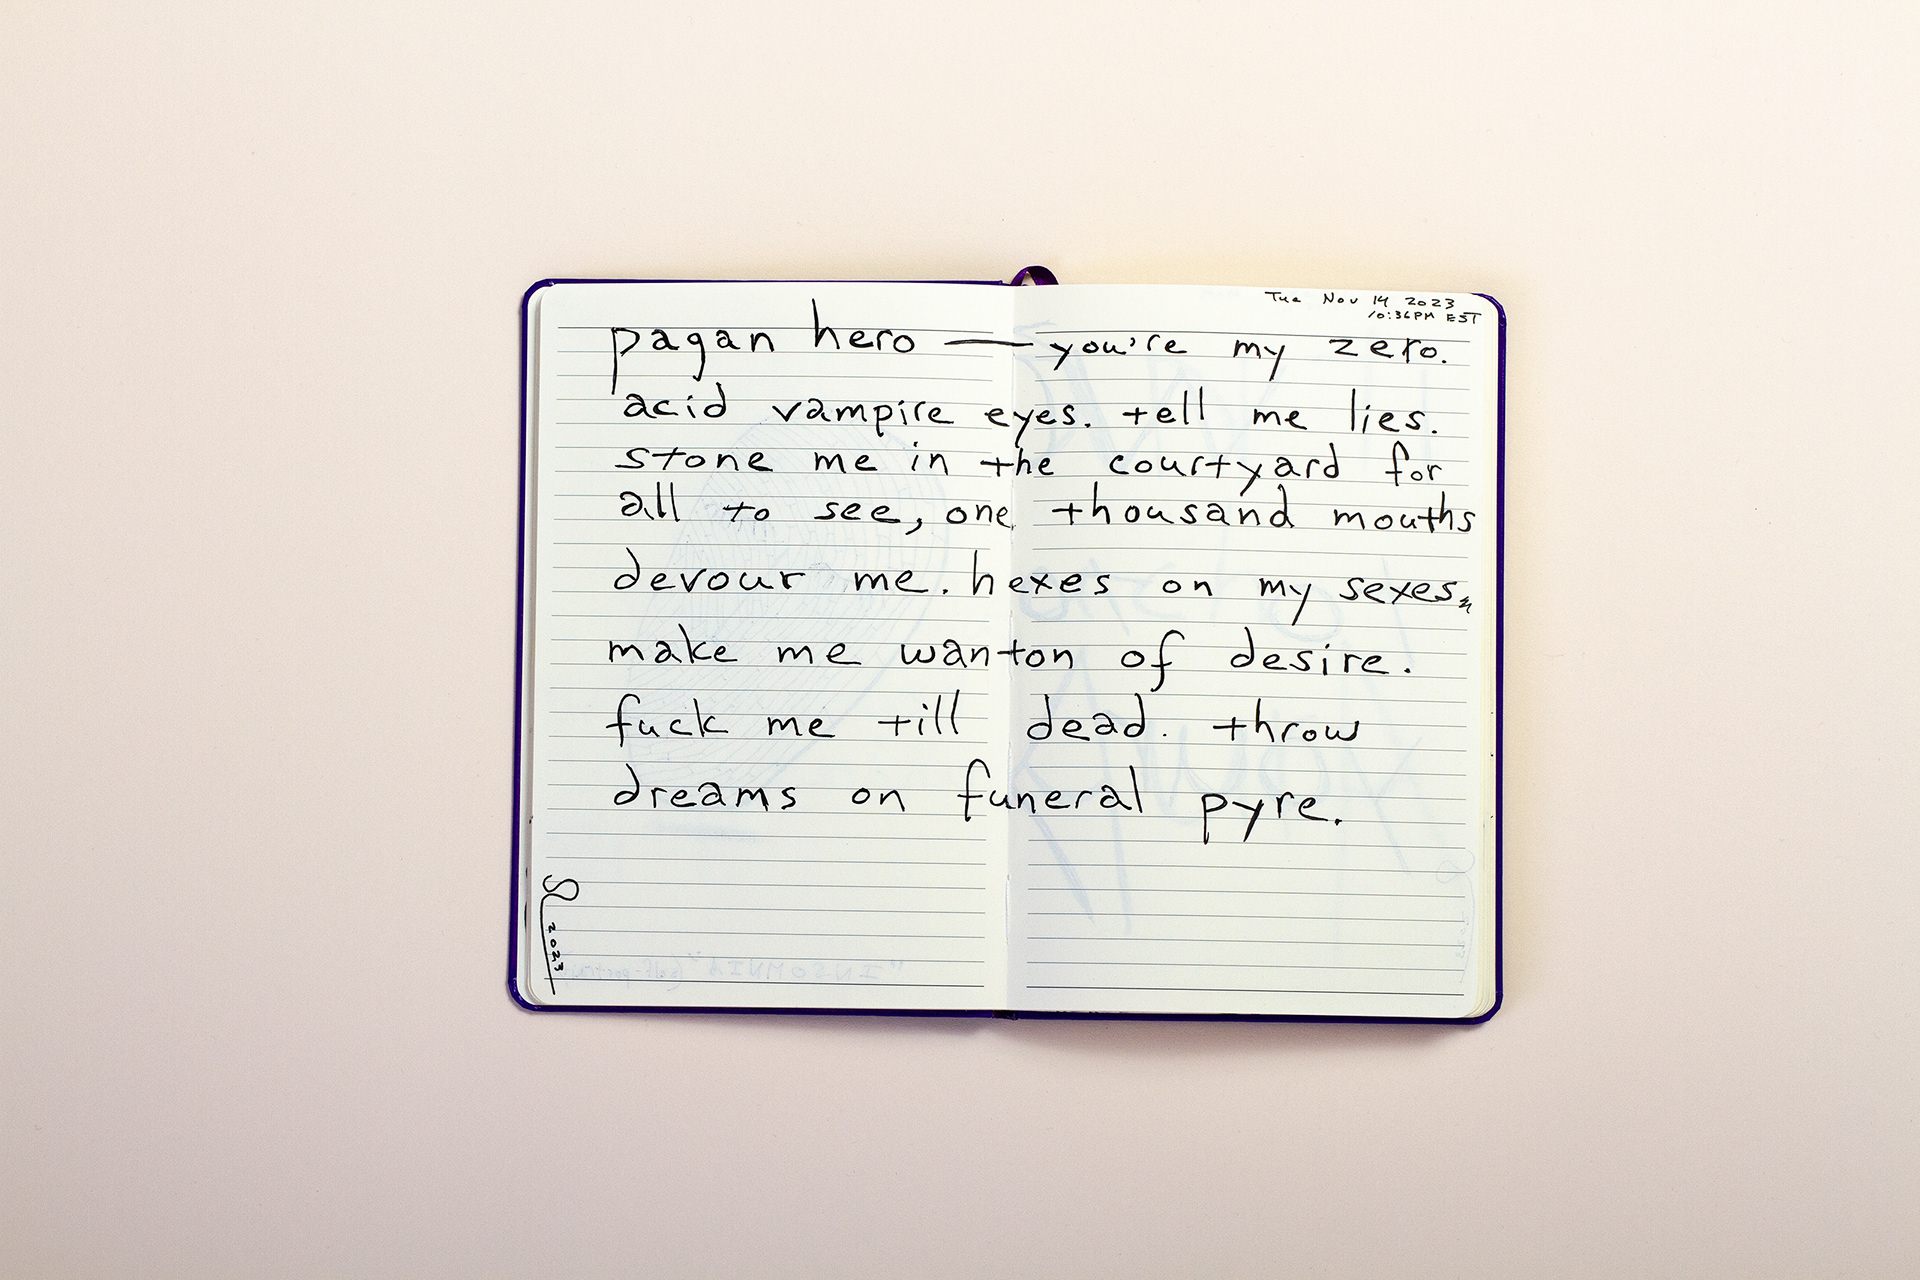 Tue Nov 14 2023
10:36PM EST
pagan hero — you're my zero.
acid vampire eyes. tell me lies.
stone me in the courtyard for
all to see, one thousand mouths
devour me. hexes on my sexes,
make me wanton of desire.
fuck me till dead. throw
dreams on funeral pyre.
2023
"INSOMNIA" (self-portrait